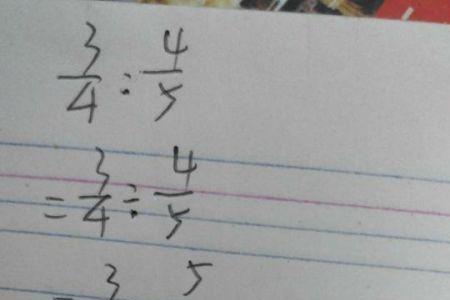 3/4 : 4/5
= 3/4 ÷ 4/5
= 3 5